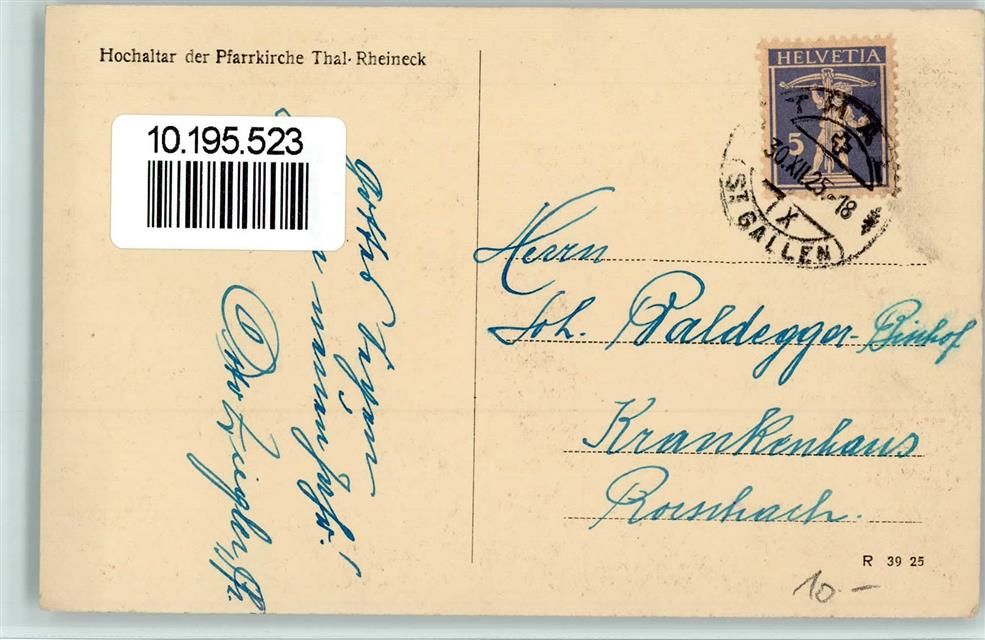 Hochaltar der Pfarrkirche Thal-Rheineck
10.195.523
HELVETIA
5
THAL
30.XII.25.-18
IX
(ST. GALLEN)
Otto Ziegler, Pfr.
Herrn
Joh. Paldegger-
Krankenhaus
Rorschach.
R 39 25
10 -